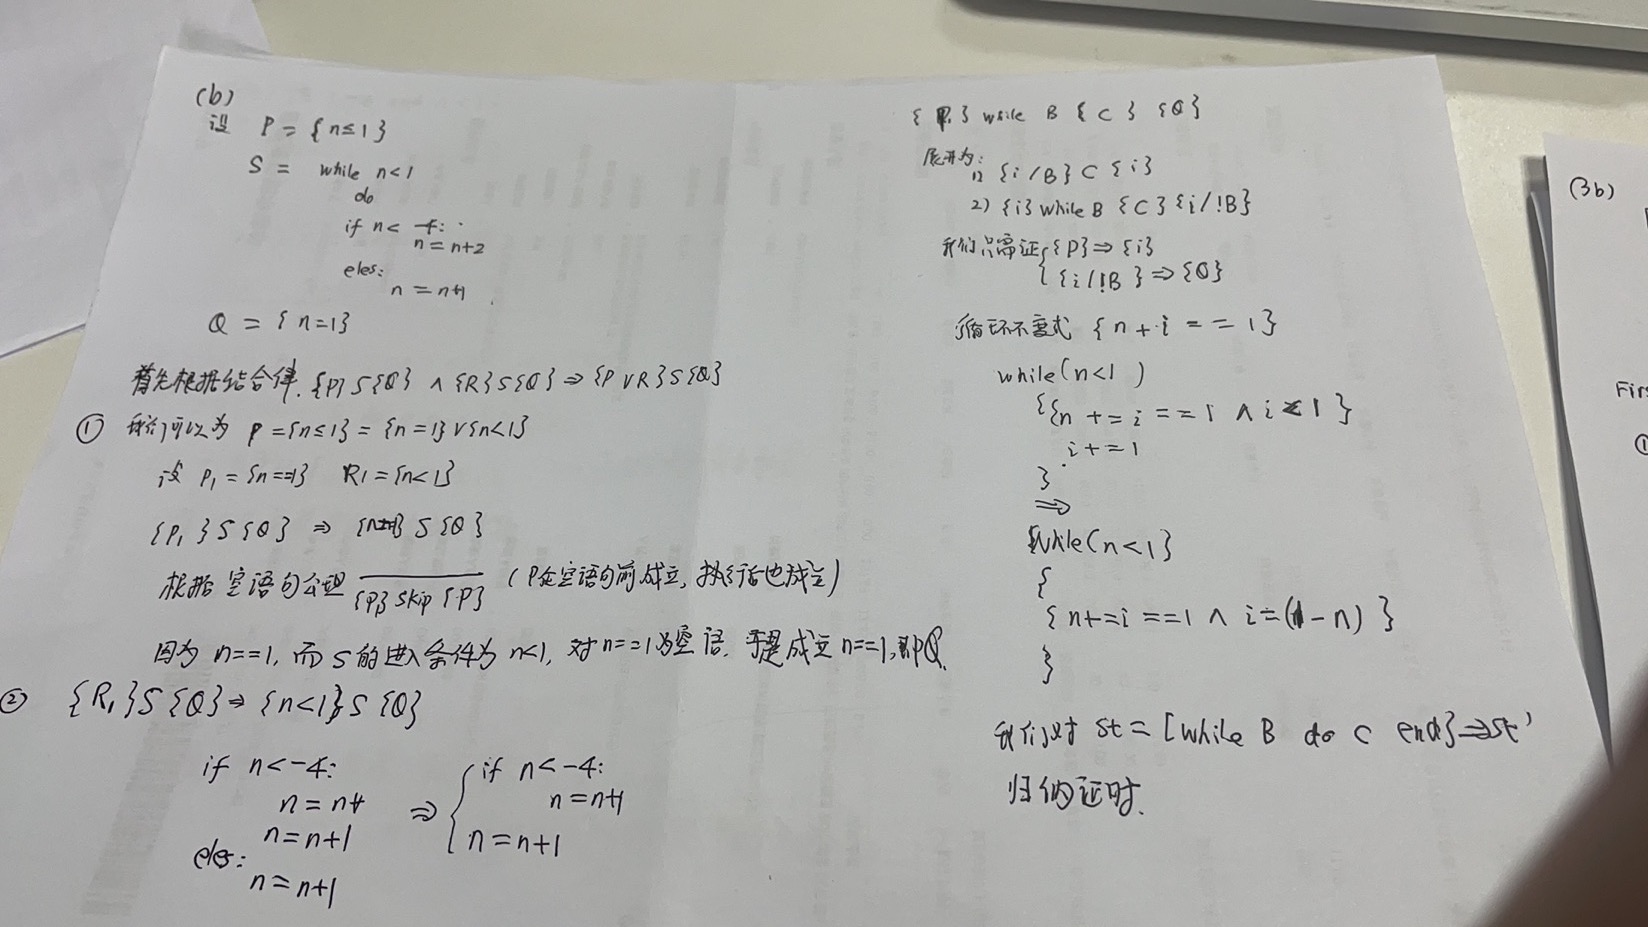 (b)
设 P = {n≤1}
S = while n<1
do
if n< -4:
n=n+2
eles:
n = n+1
Q = {n=1}
首先根据结合律. {P}S{Q} ∧ {R}S{Q} ⇒ {P∨R}S{Q}
① 我们可以为 P={n≤1} = {n=1}∨{n<1}
设 P₁={n==1} R1={n<1}
{P₁}S{Q} ⇒ S{Q}
根据空语句公理 {P} skip {P} (P在空语句前成立, 执行后也成立)
因为 n==1, 而S的进入条件为 n<1, 对n==1为空语. 于是成立 n==1, 即Q.
② {R₁}S{Q} ⇒ {n<1}S{Q}
if n<-4:
n=n+1
n=n+1
eles:
n=n+1
⇒ { if n<-4:
n=n+1
n=n+1
{P₁} while B {C} {Q}
展开为:
1) {i/B} C {i}
2) {i} while B {C} {i/!B}
我们只需证 { {P} ⇒ {i}
{i/!B} ⇒ {Q}
循环不变式 {n+i==1}
while(n<1)
{{n+=i==1 ∧ i<1}
i+=1
}
⇒
while(n<1}
{
{n+=i==1 ∧ i=(1-n)}
}
我们对 St = [while B do C end] ⇒ St'
归纳证时.
(3b)
Firs
①